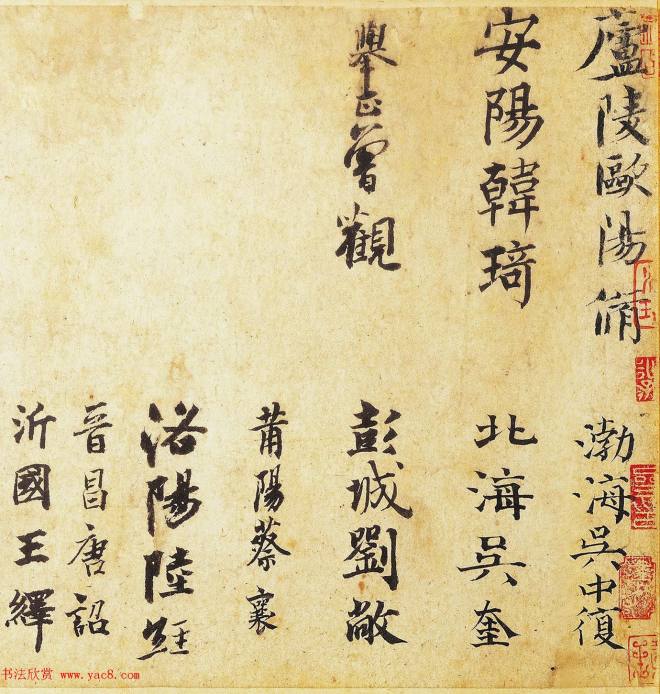 廬陵歐陽脩
安陽韓琦
舉正曾觀
渤海吳中復
北海吳奎
彭城劉敞
莆陽蔡襄
洛陽陸經
晉昌唐詔
沂國王繹
书法欣赏 www.yac8.com